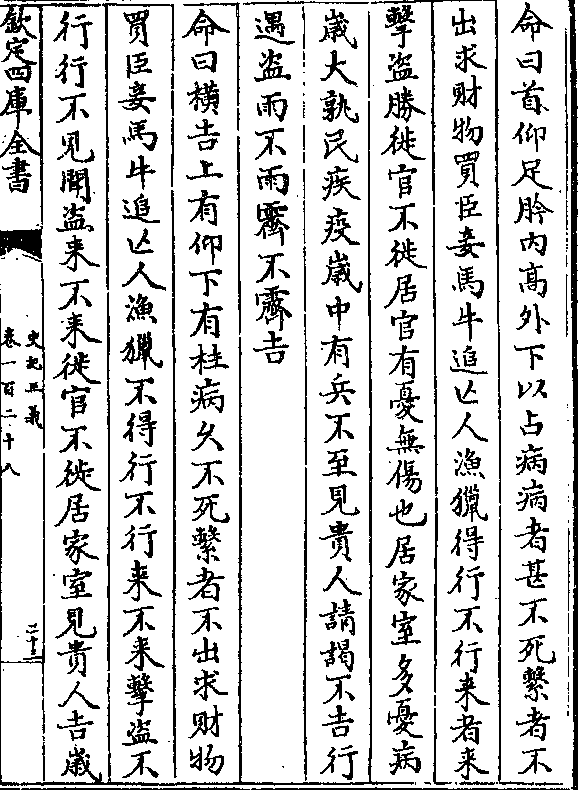 命曰首仰足肣内髙外下以占病病者甚不死繫者不
出求财物買臣妾馬牛追亡人漁獵得行不行来者来
擊盗勝徙官不徙居官有憂無傷也居家室多憂病
歳大孰民疾疫歳中有兵不至見貴人請謁不吉行
遇盗雨不雨霽不霽吉
命曰横吉上有仰下有柱病乆不死繫者不出求财物
買臣妾馬牛追亡人漁獵不得行不行来不来擊盗不
行行不見聞盗来不来徙官不徙居家室見貴人吉歳
欽定四庫全書
史記正義
卷一百二十八